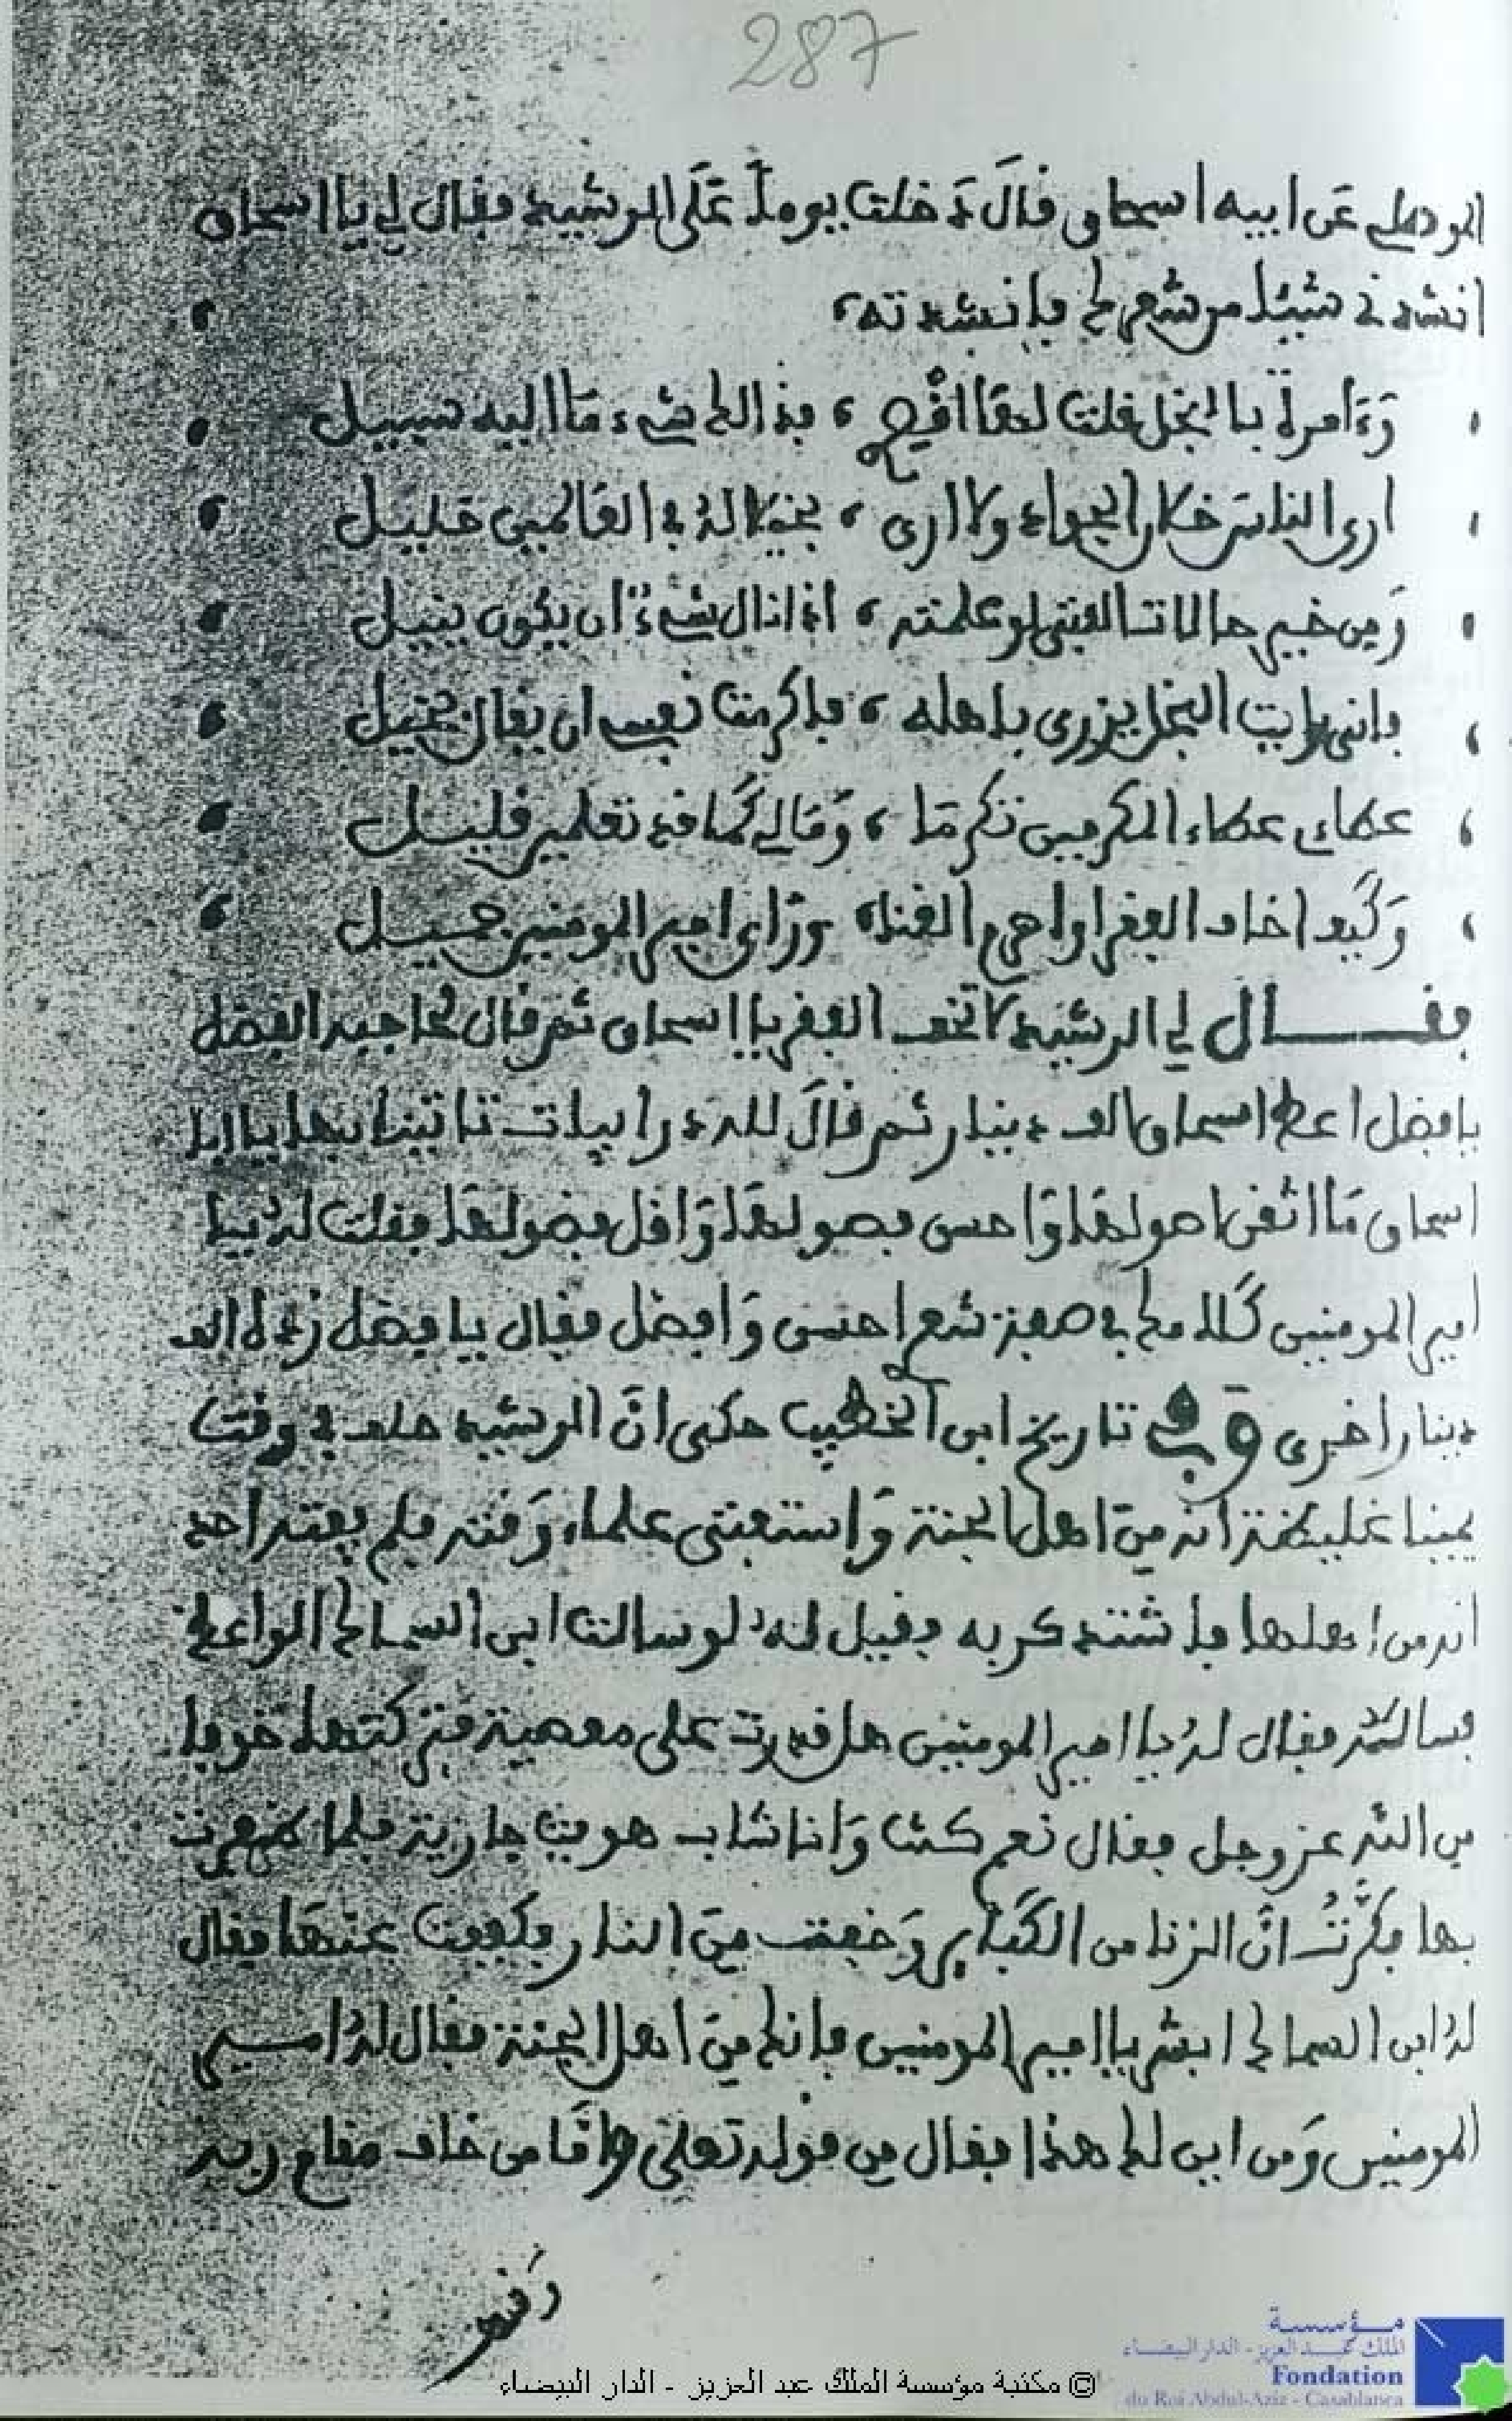 287
الموصلي عن ابيه اسحاق قال دخلت يوما على الرشيد فقال لي يا اسحاق
انشدني شيئا من شعرك فانشدته،
وءامرة بالبخل قلت لها اقصري ، فذالك شيء ما اليه سبيل
ارى الناس خلان الجواد ولا ارى ، بخيلا له في العالمين خليل
ومن خير حالات الفتى لو علمته ، اذا نال شيئا ان يكون ينيل
واني رايت البخل يزري باهله ، فاكرمت نفسي ان يقال بخيل
عطائي عطاء المكرمين تكرما ، ومالي كما قد تعلمين قليل
وكيف اخاف الفقر او احرم الغناء وراي امير المومنين جميل
فقال لي الرشيد لا تخف الفقر يا اسحاق ثم قال لحاجبه الفضل
يا فضل اعط اسحاق الف دينار ثم قال لله در ابيات تاتينا بها يا ابا
اسحاق ما اتقن اصولها واحسن فصولها واقل فضولها فقلت له يا
امير المومنين كلامك في شعري احسن وافضل فقال يا فضل زده الف
دينار اخرى وفي تاريخ ابن الخطيب حكى ان الرشيد حلف في وقت
يمينا غليظة انه من اهل الجنة واستفتى علماء وقته فلم يفته احد
انه من اهلها فاشتد كربه فقيل له لو سالت ابن السماك الواعظ
فساله فقال له يا امير المومنين هل قدرت على معصية فتركتها خوفا
من الله عز وجل فقال نعم كنت وانا شاب هويت جارية فلما ظفرت
بها فكرت ان الزنا من الكبائر وخفت من النار وكففت عنها فقال
له ابن السماك ابشر يا امير المومنين فانك من اهل الجنة فقال له امير
المومنين ومن اين لك هذا فقال من قوله تعلى واما من خاف مقام ربه
ونهى
© مكتبة مؤسسة الملك عبد العزيز - الدار البيضاء
مؤسسة
الملك عبد العزيز - الدار البيضاء
Fondation
du Roi Abdul-Aziz - Casablanca